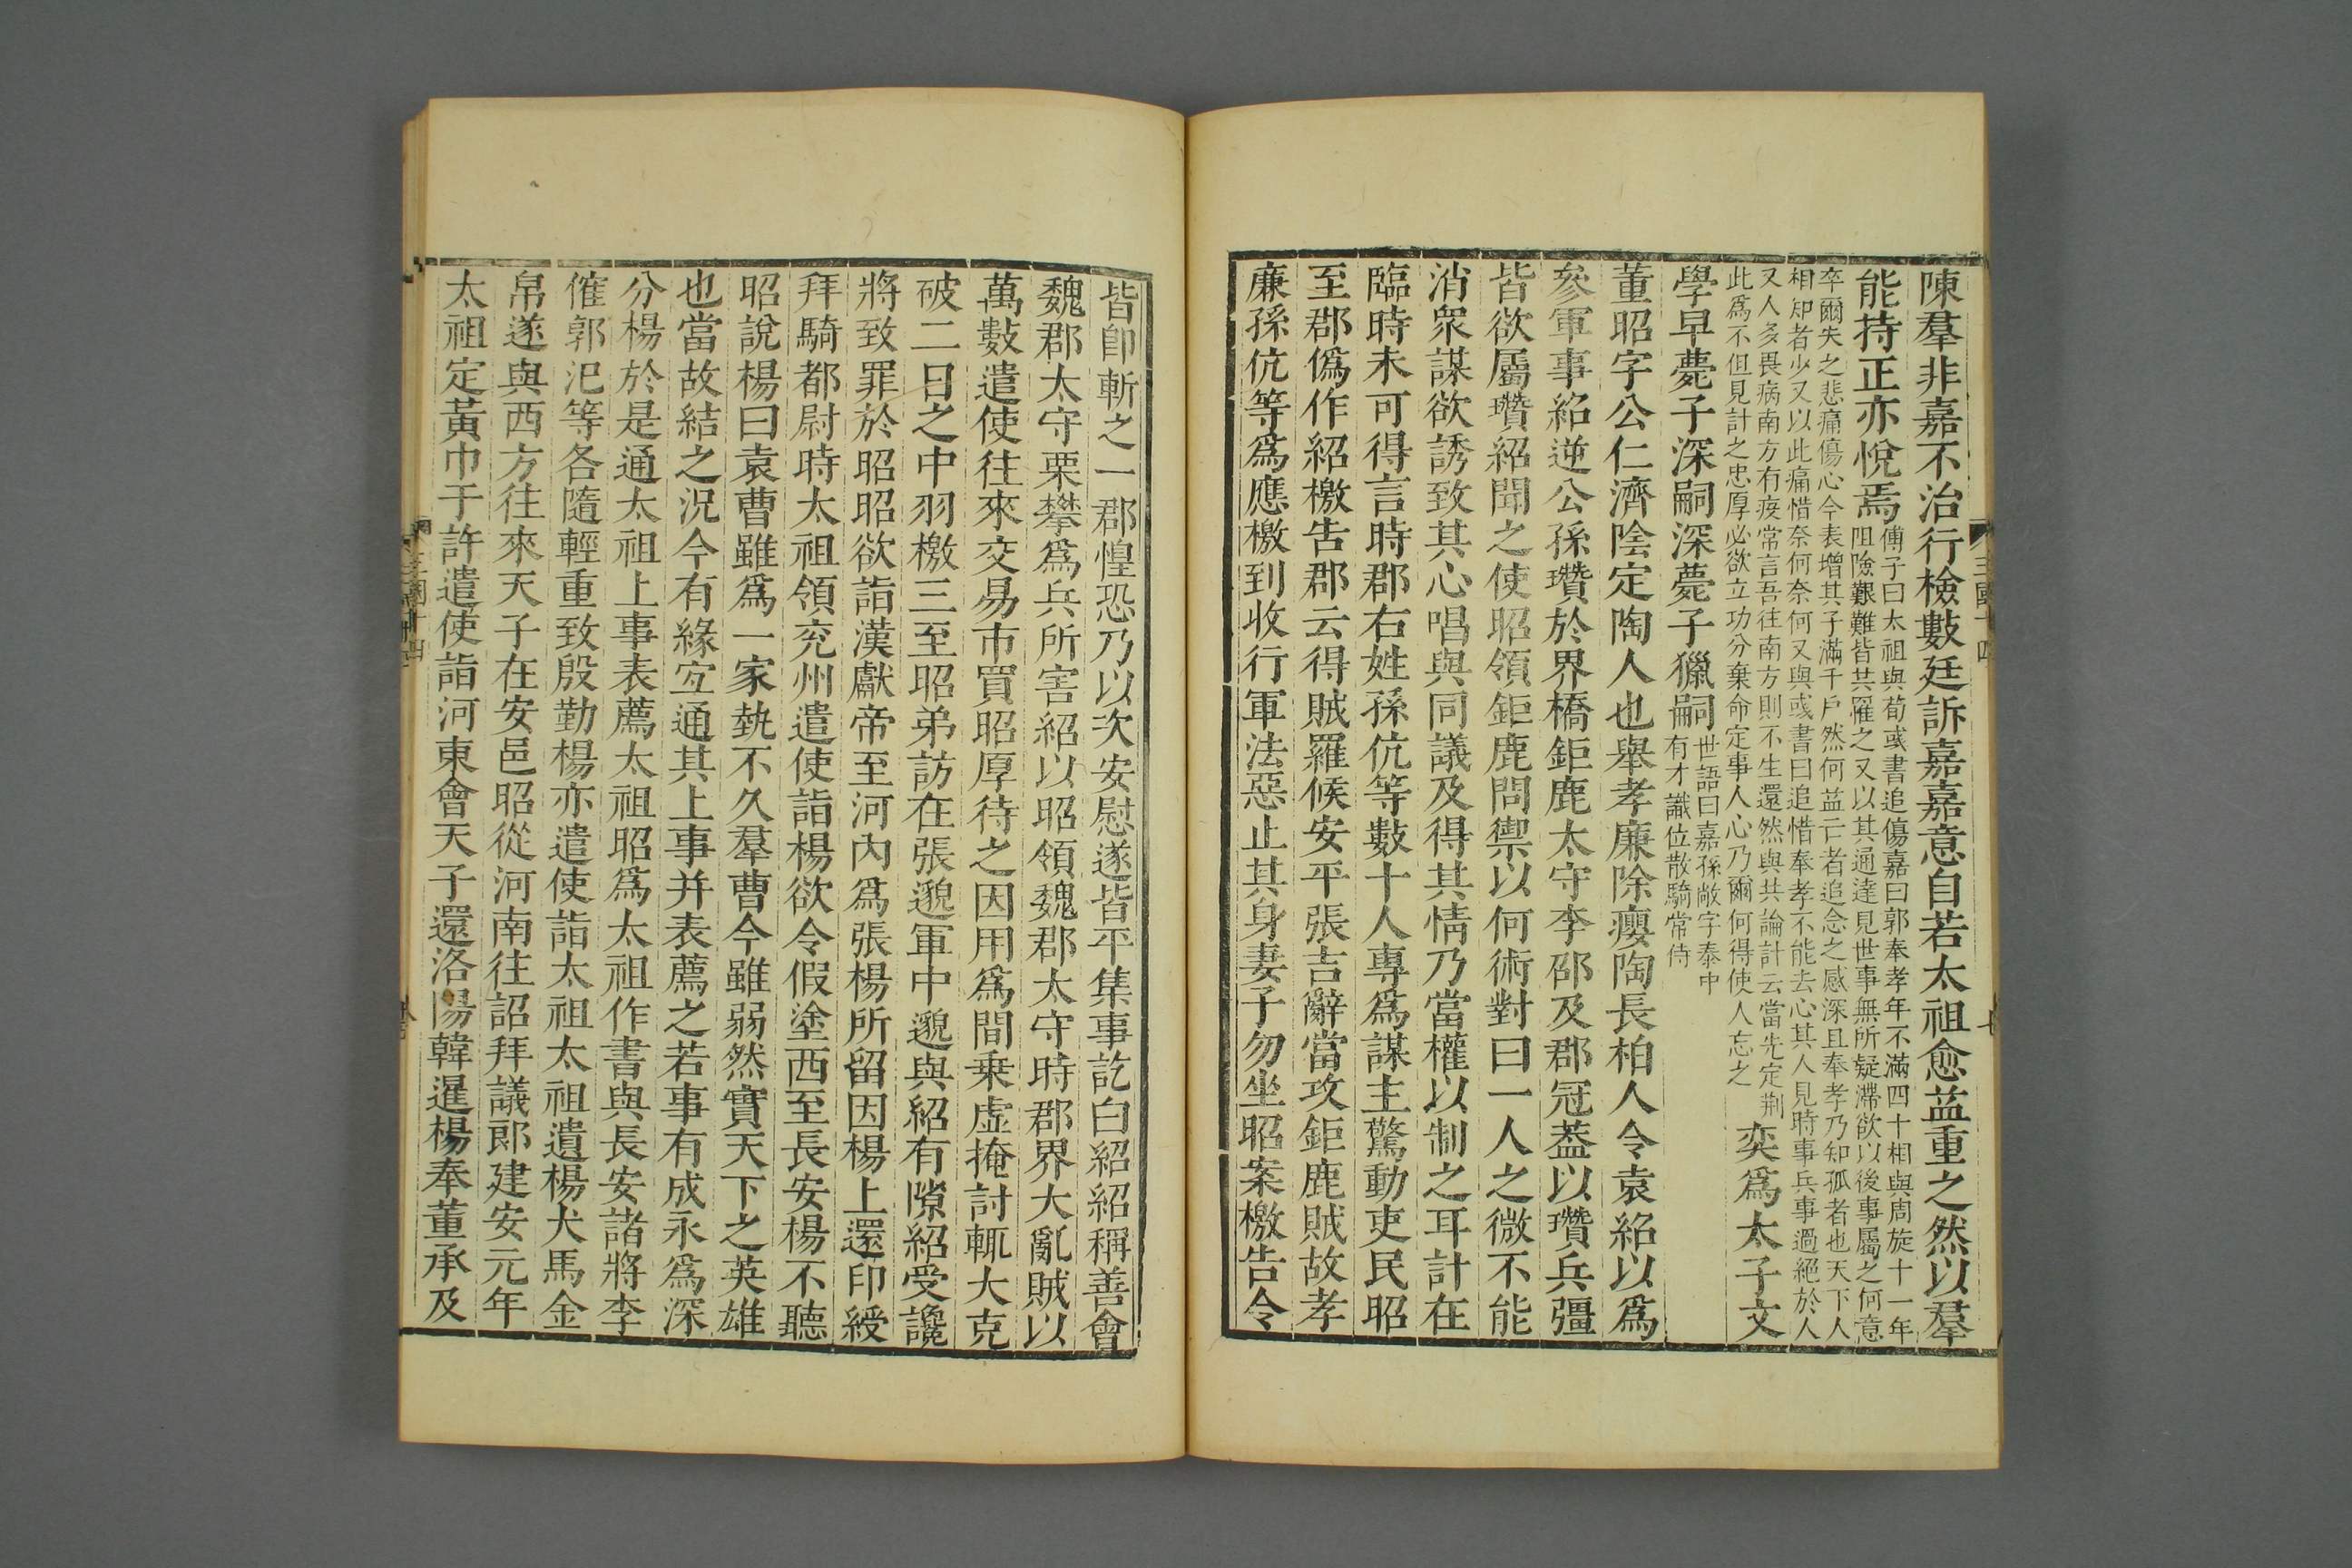 陳羣非嘉不治行檢數廷訴嘉嘉意自若太祖愈益重之然以羣
能持正亦悅焉
傅子曰太祖與荀彧書追傷嘉曰郭奉孝年不滿四十相與周旋十一年
阻險艱難皆共罹之又以其通達見世事無所疑滯欲以後事屬之何意
卒爾失之悲痛傷心今表增其子滿千戶然何益亡者追念之感深且奉孝乃知孤者也天下人
相知者少又以此痛惜奈何奈何又與彧書曰追惜奉孝不能去心其人見時事兵事過絕於人
又人多畏病南方有疫常言吾往南方則不生還然與共論計云當先定荆
此爲不但見計之忠厚必欲立功分棄命定事人心乃爾何得使人忘之
奕爲太子文
學早薨子深嗣深薨子獵嗣
世語曰嘉孫敞字泰中
有才識位散騎常侍
董昭字公仁濟陰定陶人也舉孝廉除癭陶長柏人令袁紹以爲
參軍事紹逆公孫瓚於界橋鉅鹿太守李邵及郡冠葢以瓚兵彊
皆欲屬瓚紹聞之使昭領鉅鹿問禦以何術對曰一人之微不能
消衆謀欲誘致其心唱與同議及得其情乃當權以制之耳計在
臨時未可得言時郡右姓孫伉等數十人專爲謀主驚動吏民昭
至郡僞作紹檄告郡云得賊羅候安平張吉辭當攻鉅鹿賊故孝
廉孫伉等爲應檄到收行軍法惡止其身妻子勿坐昭案檄告令
皆卽斬之一郡惶恐乃以次安慰遂皆平集事訖白紹紹稱善會
魏郡太守栗攀爲兵所害紹以昭領魏郡太守時郡界大亂賊以
萬數遣使往來交易市買昭厚待之因用爲間乗虛掩討輒大克
破二日之中羽檄三至昭弟訪在張邈軍中邈與紹有隙紹受讒
將致罪於昭昭欲詣漢獻帝至河內爲張楊所留因楊上還印綬
拜騎都尉時太祖領兖州遣使詣楊欲令假塗西至長安楊不聽
昭說楊曰袁曹雖爲一家埶不久羣曹今雖弱然實天下之英雄
也當故結之況今有緣宐通其上事并表薦之若事有成永爲深
分楊於是通太祖上事表薦太祖昭爲太祖作書與長安諸將李
傕郭汜等各隨輕重致殷勤楊亦遣使詣太祖太祖遺楊犬馬金
帛遂與西方往來天子在安邑昭從河南往詔拜議郎建安元年
太祖定黃巾于許遣使詣河東會天子還洛陽韓暹楊奉董承及